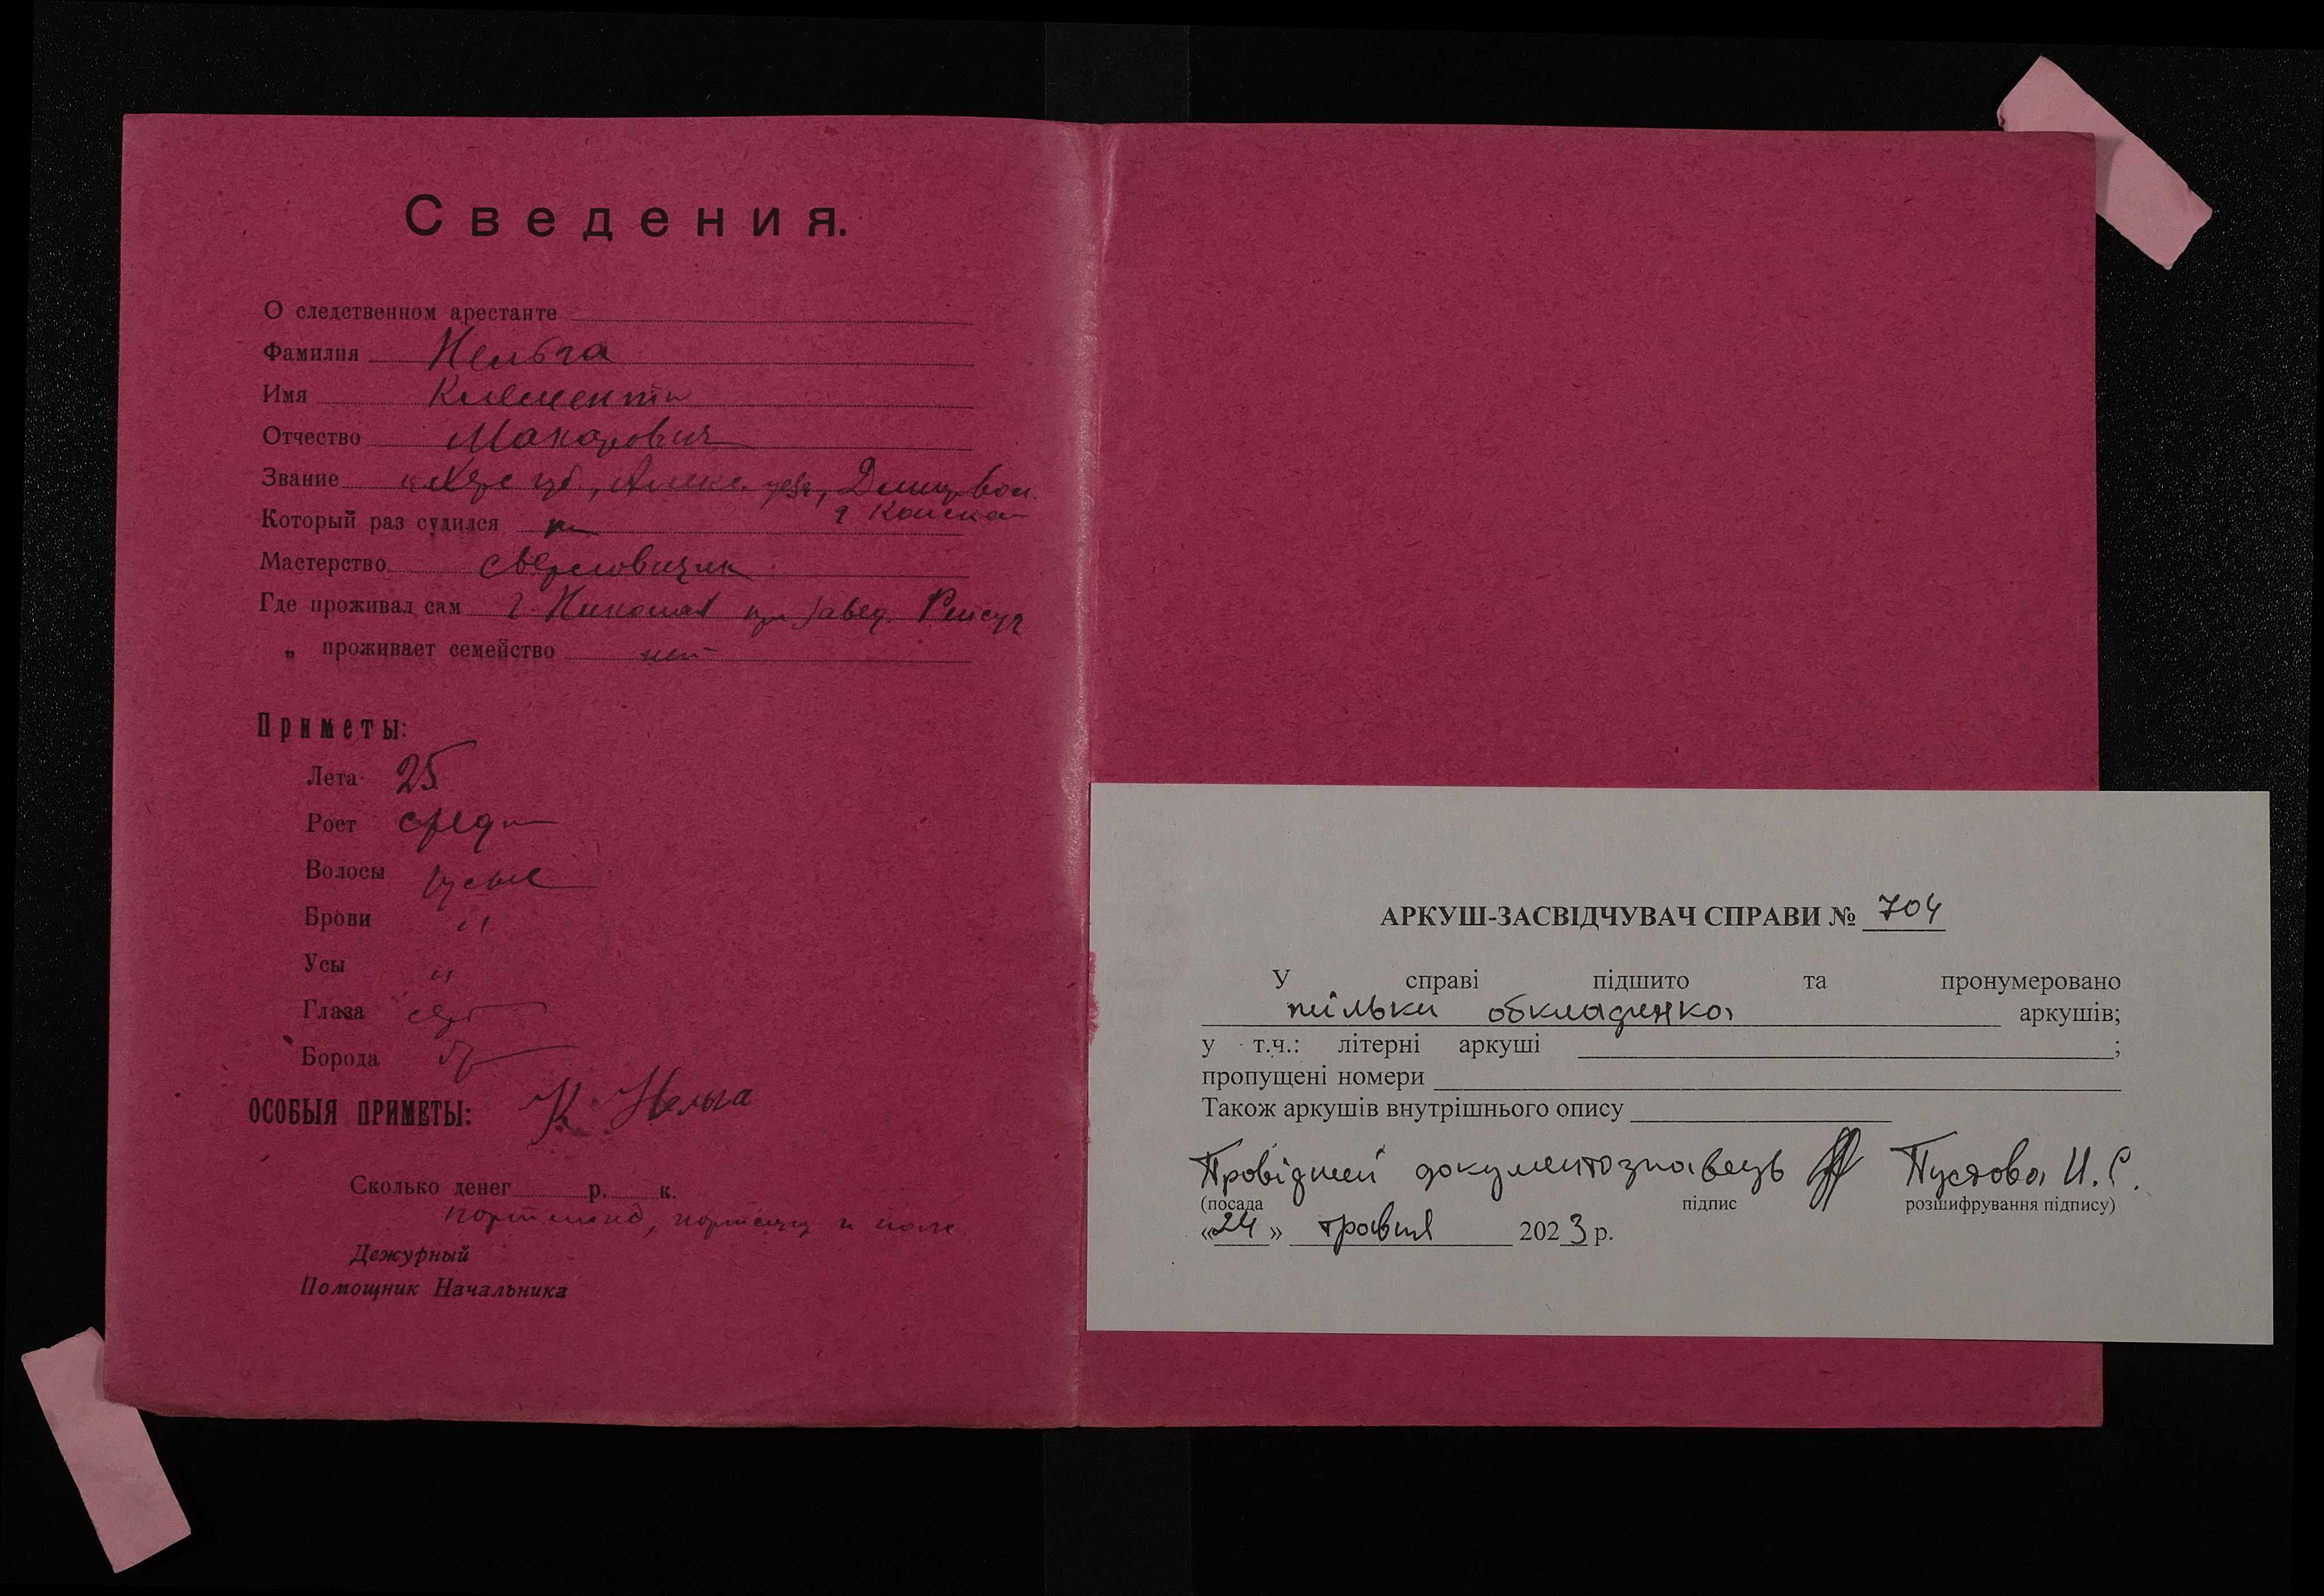 Сведения.
О следственном арестанте
Фамилия Нельга
Имя Клементи
Отчество Макарович
Звание Хер губ, Алекс. уезд, Дмитр вол.
Который раз судился
Мастерство сверловщик
Где проживал сам г. Николаев завед.
„ проживает семейство нет
Приметы:
Лета 25
Рост средн
Волосы русые
Брови "
Усы "
Глаза сер
Борода бр
ОСОБЫЯ ПРИМЕТЫ: К Нельга
Сколько денег р. к.
портмонэ, портсигар и
Дежурный
Помощник Начальника
АРКУШ-ЗАСВІДЧУВАЧ СПРАВИ № 704
У справі підшито та пронумеровано
тільки обкладинка аркушів;
у т.ч.: літерні аркуші ;
пропущені номери
Також аркушів внутрішнього опису
Провідний документознавець Пустова И.С.
(посада підпис розшифрування підпису)
«24» травня 2023 р.